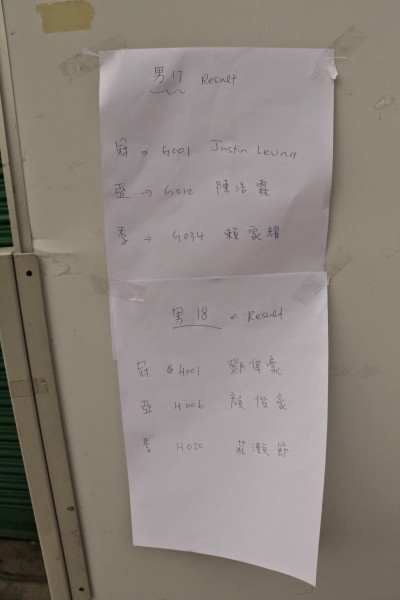 男 17 Result
冠 → G001 Justin Leung
亞 → G012 陳浩霖
季 → G034 賴家耀
男 18 Result
冠 H001 鄧偉豪
亞 H006 顏俊豪
季 H020 莊灝